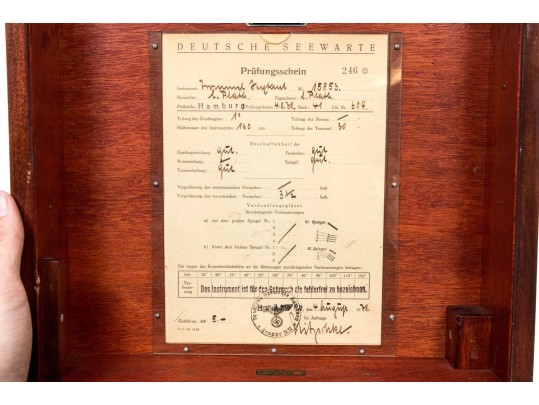 DEUTSCHE SEEWARTE
Prüfungsschein 246
Instrument: Trommel Sextant Nr. 15853
Hersteller: C. Plath Eigentümer: C. Plath
Prüfstelle: Hamburg Prüfungsdatum: 4.8.38 Buch: 41 Lfd. Nr. 609
Teilung des Gradbogens: 1° Teilung des Nonius:
Halbmesser des Instrumentes: 160 mm Teilung der Trommel: 30
Beschaffenheit der
Gradbogenteilung: gut. Fernrohre: gut
Noniusteilung: Spiegel: gut.
Trommelteilung: gut
Vergrößerung des astronomischen Fernrohrs: fach
Vergrößerung des terrestrischen Fernrohrs: 3½ fach
Verdunkelungsgläser
Anzubringende Verbesserungen
a) vor dem großen Spiegel Nr. Gr. Spiegel
b) hinter dem kleinen Spiegel Nr. Kl. Spiegel
Die wegen des Exzentrizitätsfehlers an die Ablesungen anzubringenden Verbesserungen betragen:
bei 10° 20° 30° 40° 50° 60° 70° 80° 90° 100° 110° 120°
Verbesserung Das Instrument ist für den Gebrauch als fehlerfrei zu bezeichnen.
Hamburg, den 4. August 1938
Gebühren: RM 5.- Im Auftrage